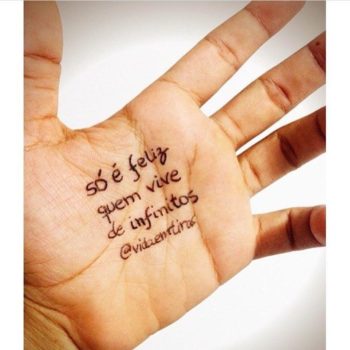 só é feliz
quem vive
de infinitos
@vidaemtiras